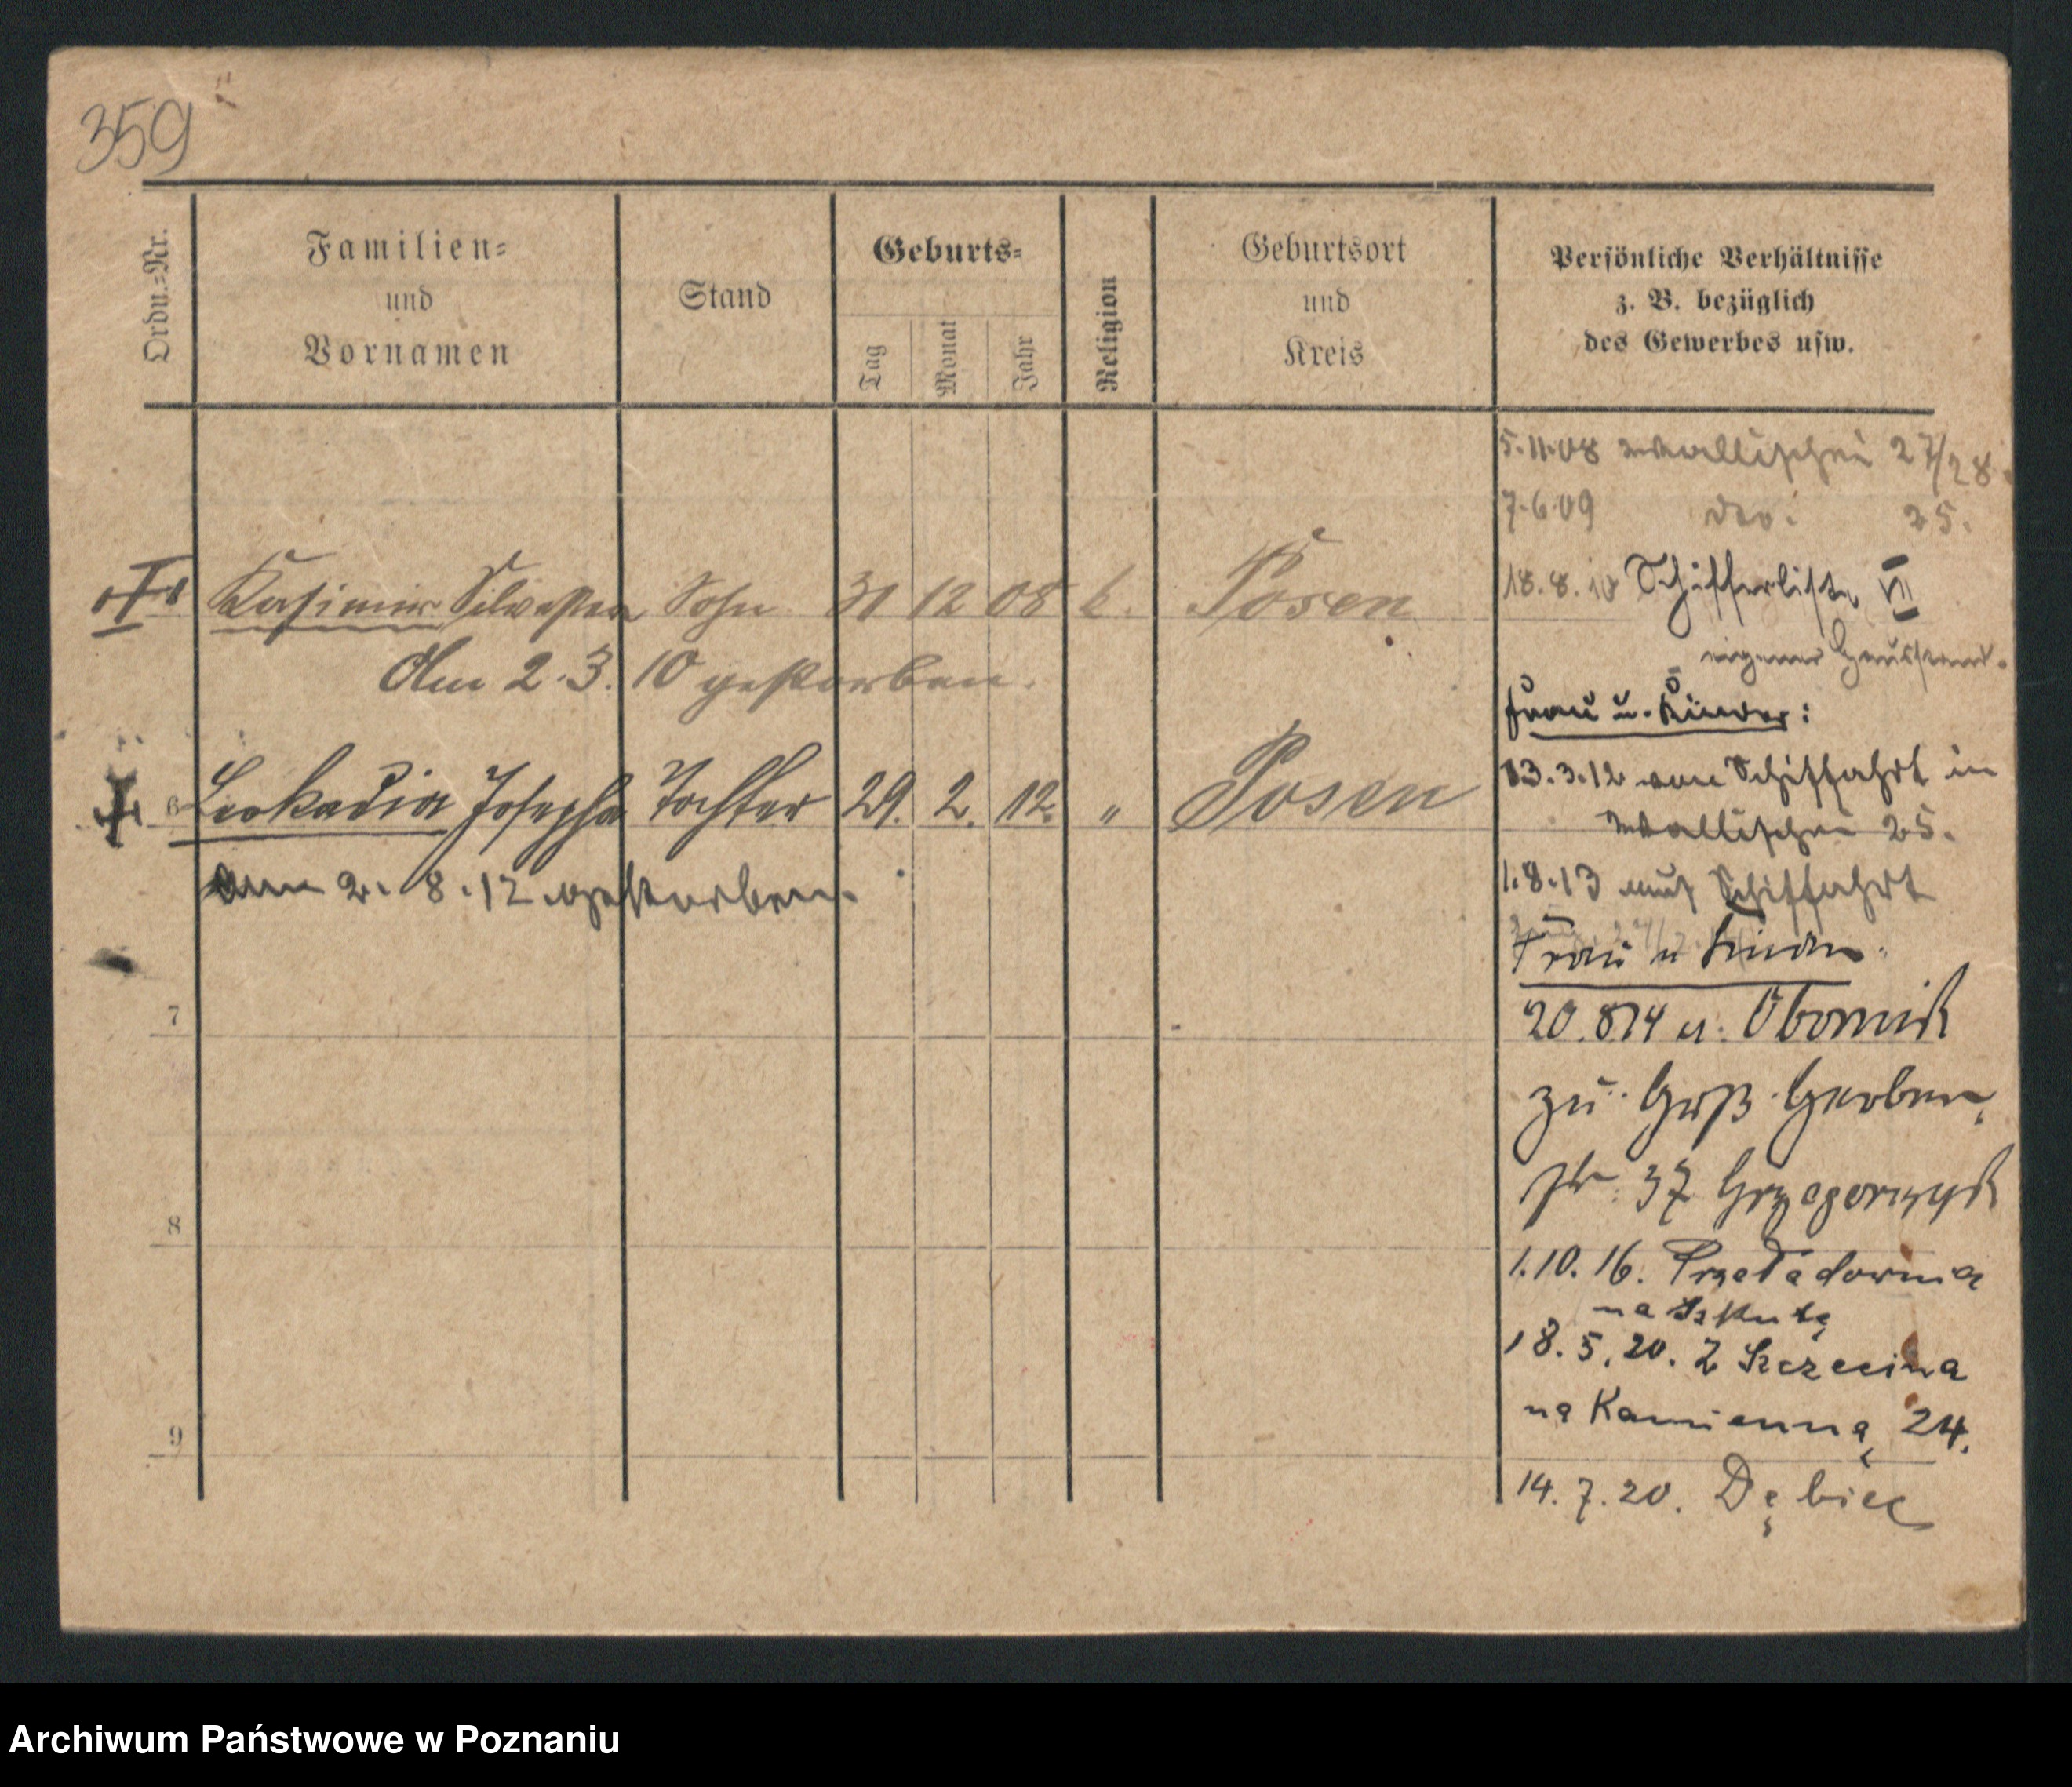 359
Ordn.-Nr.
Familien-
und
Vornamen
Stand
Geburts-
Tag
Monat
Jahr
Religion
Geburtsort
und
Kreis
Persönliche Verhältnisse
z. B. bezüglich
des Gewerbes usw.
5.11.08 Wallischei 27/28.
7.6.09 do. 25.
Kasimir Silvester Sohn 31 12 08 k. Posen
18.8.10 Schifferliste VII
eigener Hausstand.
Am 2.3.10 gestorben.
Frau u. Kinder:
6 Leokadia Josepha Tochter 29. 2. 12. " Posen
13.3.12 von Schiffahrt in
Wallischei 25.
am 2.8.12 gestorben.
1.8.13 auf Schiffahrt
Frau u Kinder.
7
20.8 14 a. Obornik
zu Groß Gerber
str. 37 Grzegorczyk
8
1.10.16.
na
18.5.20. Z Szczecina
na Kamienną 24.
9
14.7.20. Dębiec
Archiwum Państwowe w Poznaniu